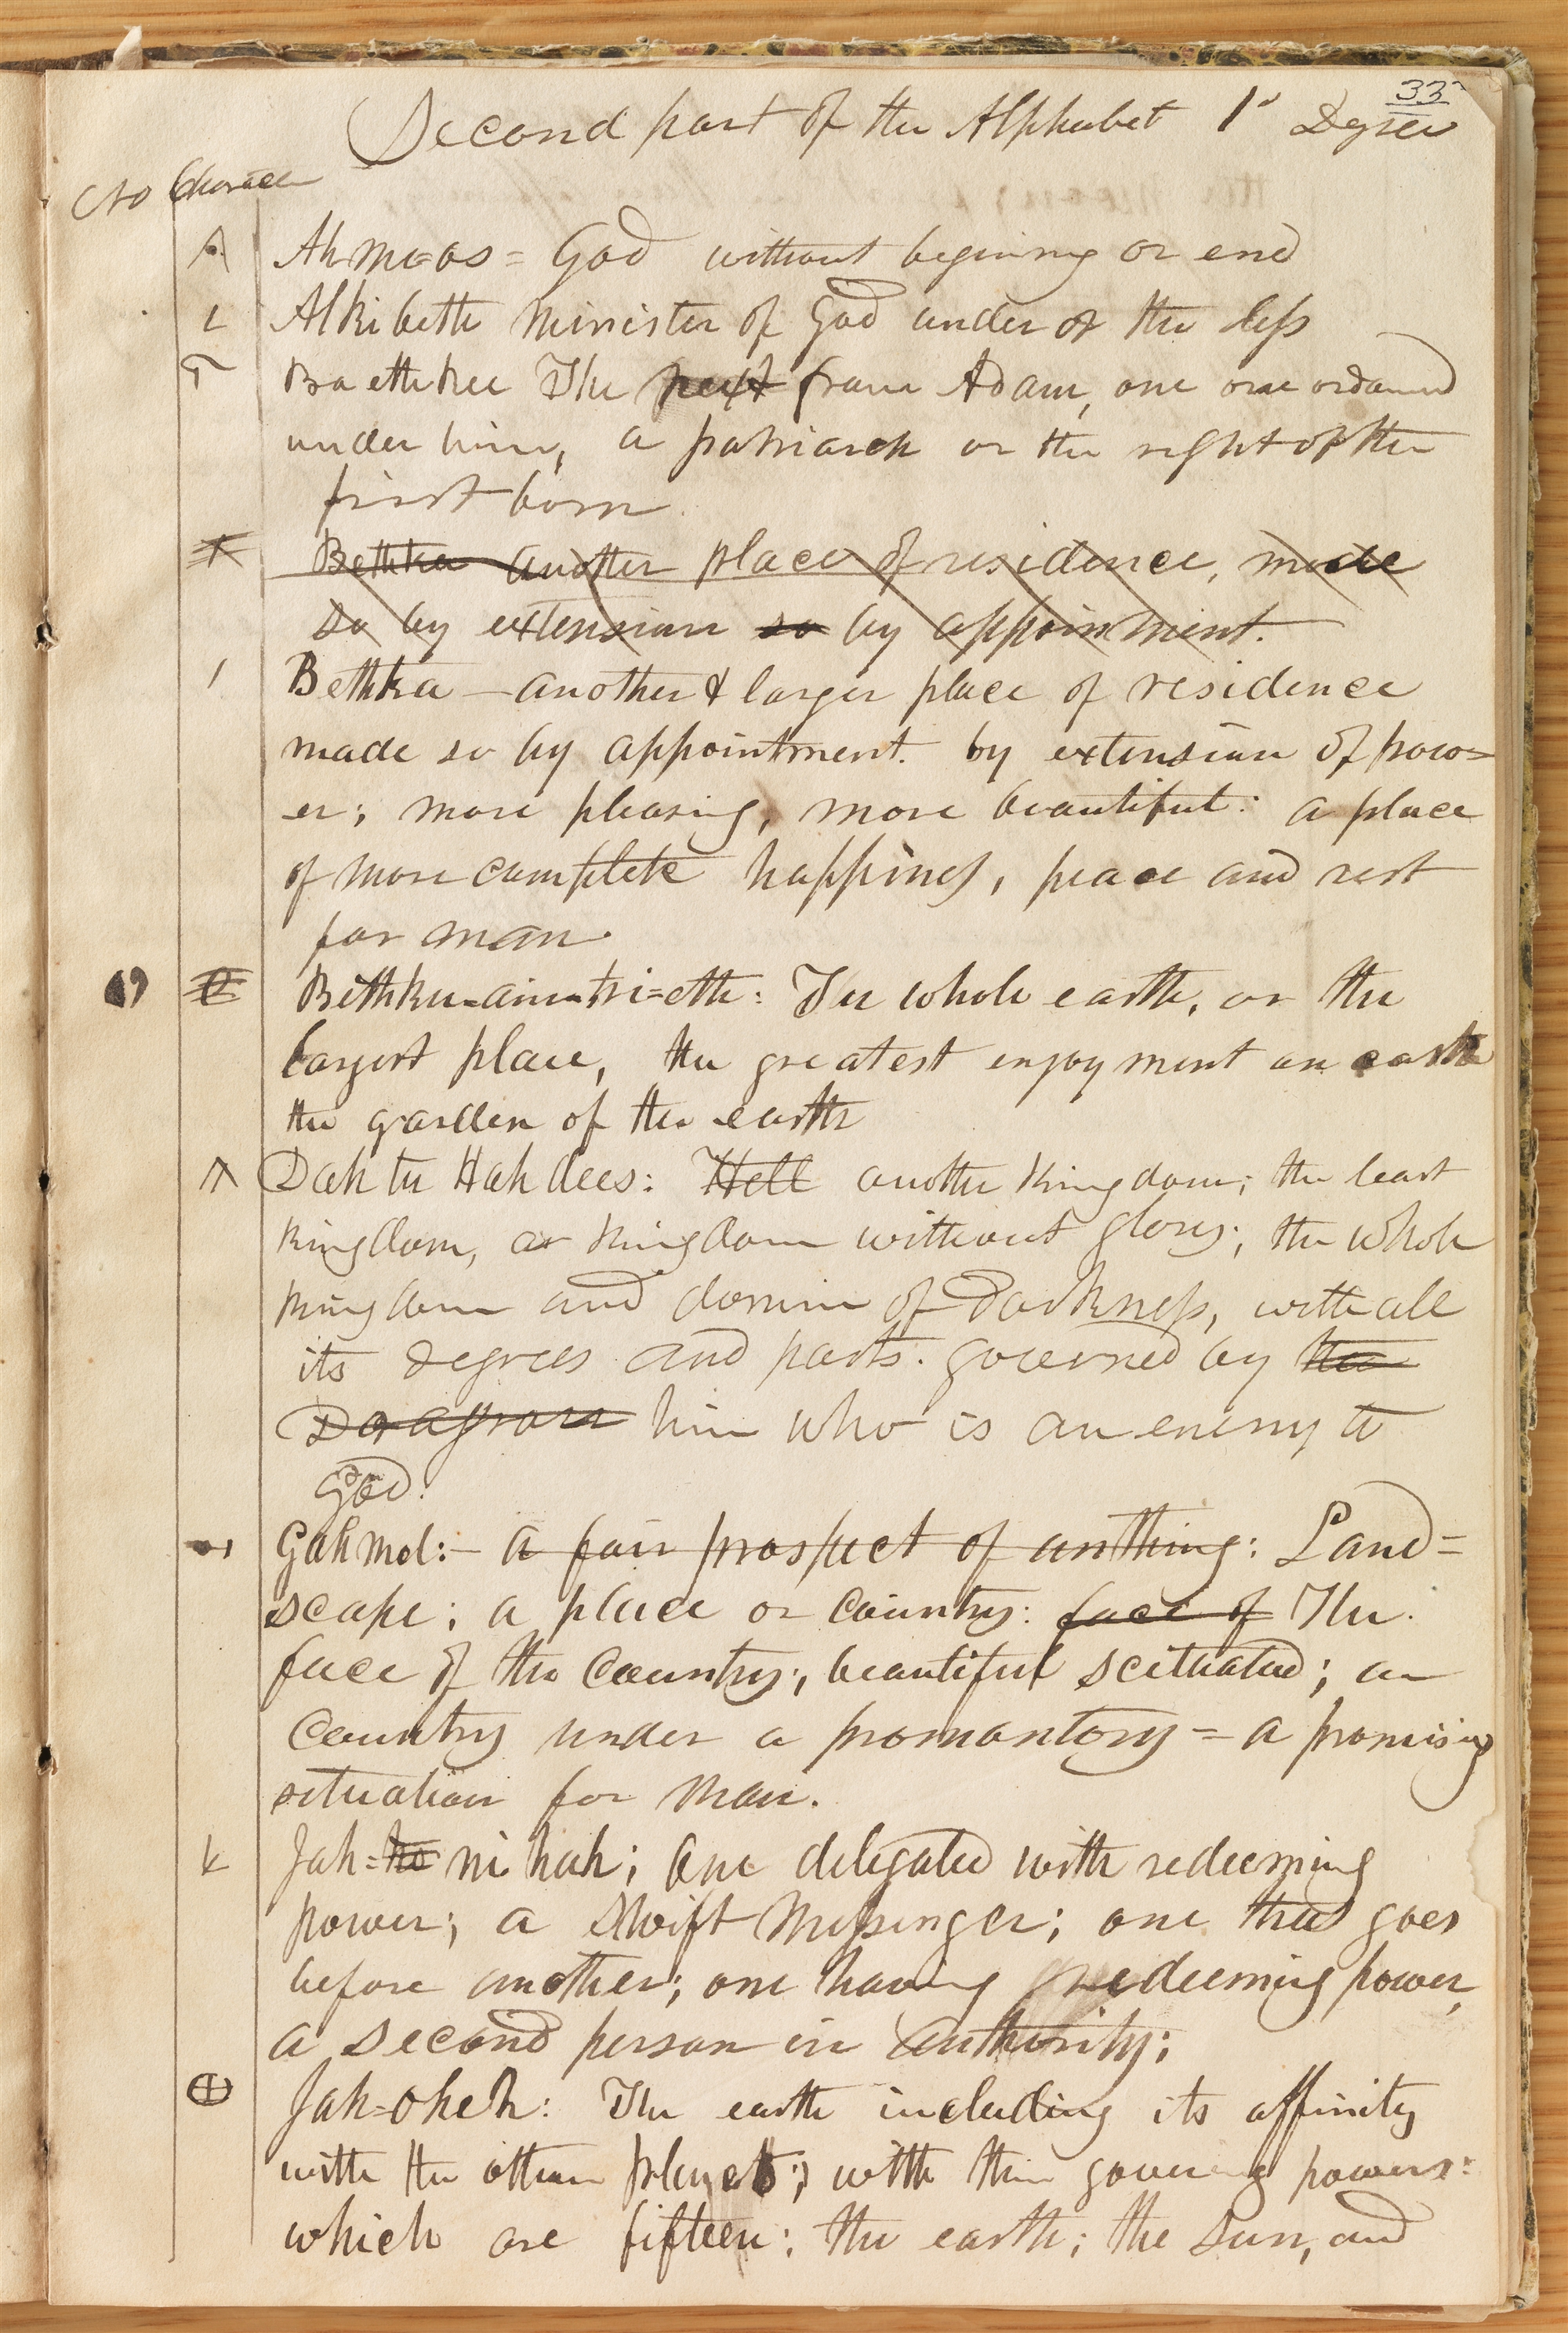 33
Second part of the Alphabet 1s Degree
No Character
Ahme=os = God without begining or end
Alkibeth Minister of God under or the less
Baethkee The next from Adam, one one ordained
under him, a patriarch or the right of the
first born
Bethka another place of residence, made
so by extension so by appointment.
Bethka — another & larger place of residence
made so by appointment. by extension of pow=
er; more pleasing, more beautiful: a place
of more complete happiness, peace and rest
for man
Bethku=aim=tri=eth: The whole earth, or the
largest place, the greatest enjoyment on earth
the garden of the earth
Dah tu Hah dees: Hell another kingdom; the least
kingdom, or kingdom without glory; the whole
kingdom and domin of Darkness, with all
its degrees and parts. governed by the
him who is an enemy to
God.
Gahmol:— a fair prospect of anthing: Land=
scape; a place or Country: face of The
face of the Country; beautiful scituated; an
Country under a promontory = a promising
situation for man.
Jah=ho ni hah; one delegated with redeeming
power; a swift Messenger; one that goes
before another; one having redeeming power,
a second person in authority;
Jah=oheh: The earth including its affinity
with the other planets; with their governing powers:
which are fifteen: the earth; the sun, and